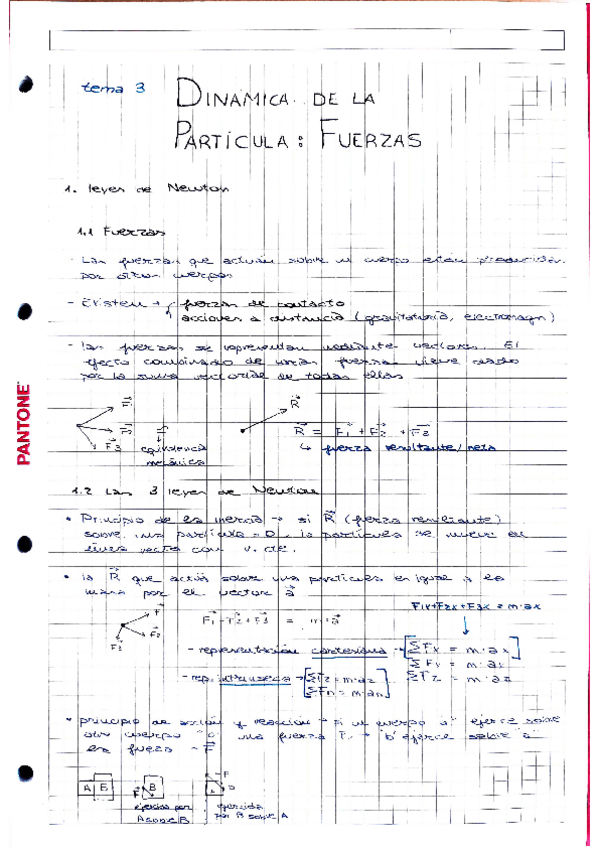 tema 3
DINÁMICA DE LA
PARTÍCULA: FUERZAS
1. leyes de Newton
1.1 Fuerzas
- Las fuerzas que actúan sobre un cuerpo están producidas
por otros cuerpos
- Existen → { fuerzas de contacto
acciones a distancia (gravitatoria, electromagn)
- las fuerzas se representan mediante vectores. El
efecto combinado de varias fuerzas viene dado
por la suma vectorial de todas ellas
PANTONE
F⃗3
equivalencia
mecánica
R⃗
R⃗ = F⃗1 + F⃗2 + F⃗3
↳ fuerza resultante/neta
1.2 Las 3 leyes de Newton
• Principio de la inercia → si R⃗ (fuerza resultante)
sobre una partícula = 0, la partícula se mueve en
línea recta con v. cte.
• la R⃗ que actúa sobre una partícula es igual a la
masa por el vector a⃗
F1x+F2x+F3x = m·ax
F⃗1 + F⃗2 + F⃗3 = m·a⃗
F⃗2
F⃗3
- representación cartesiana → [ΣFx = m·ax]
ΣFy = m·ay
ΣFz = m·az
- rep. intrínseca →
ΣFn = m·an
• principio de acción y reacción → si un cuerpo "a" ejerce sobre
otro cuerpo una fuerza F, → "b" ejerce sobre "a"
la fuerza -F⃗
A B
F⃗ B
ejercida por
A sobre B
-F
ejercida
por B sobre A